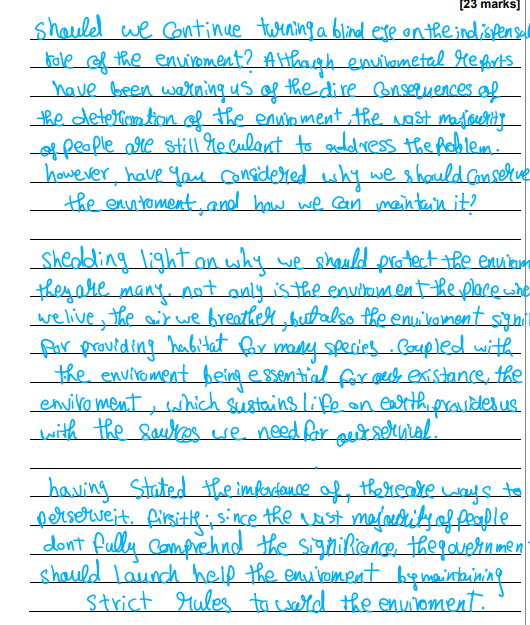 [23 marks]
should we continue turning a blind eye on the indispensa
role of the enviroment? Although envirometal reports
have been warning us of the dire consequences of
the deterioration of the enviroment, the vast majourity
of people are still reculant to address the problem.
however, have you considered why we should conserve
the enviroment, and how we can maintain it?
shedding light on why we should protect the envirom
they are many. not only is the enviroment the place whe
we live, the air we breather, but also the enviroment signi
for providing habitat for many species. Coupled with
the enviroment being essential for our existance, the
enviroment, which sustains life on earth, provides us
with the sources we need for our servival.
having stated the importance of, there are ways to
perserve it. firsitly; since the vast majourity of people
dont fully comprehnd the significance, the governmen
should launch help the enviroment by maintaining
strict rules to ward the enviroment.